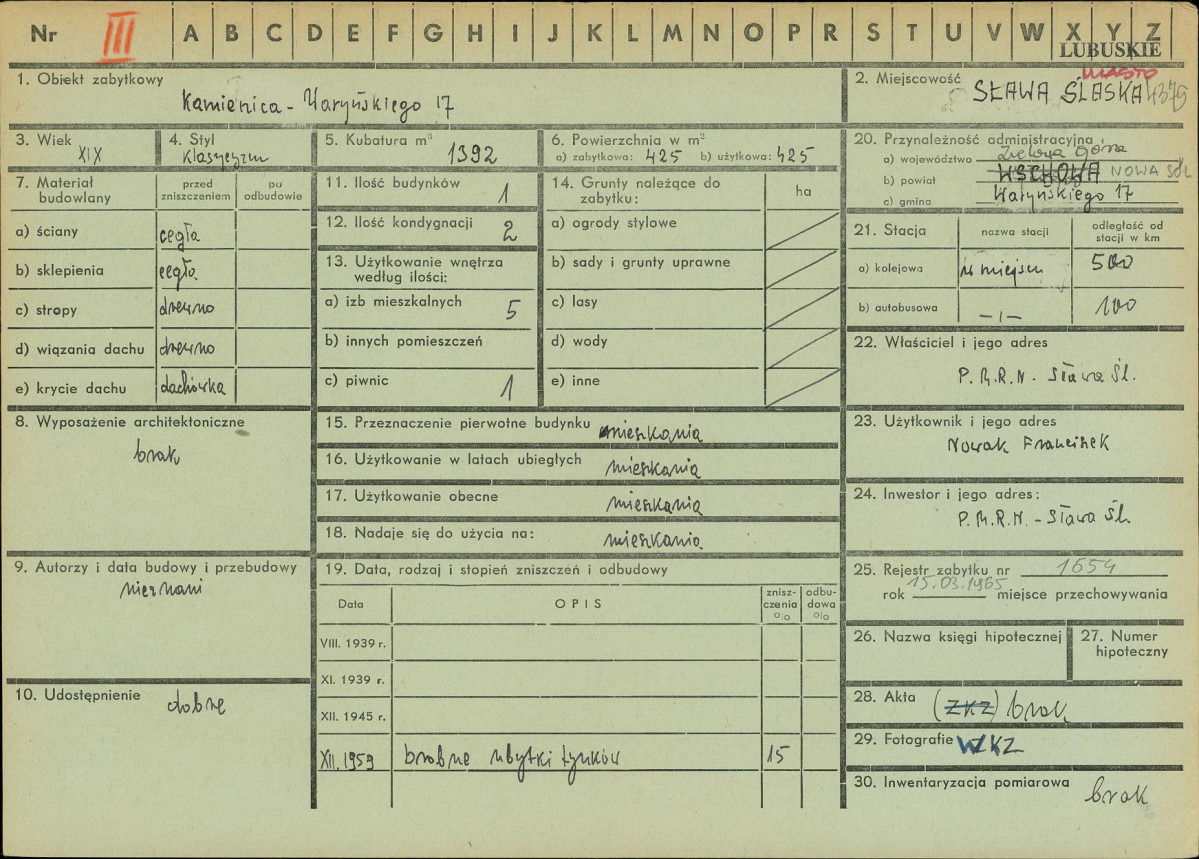 Nr III A B C D E F G H I J K L M N O P R S T U V W X Y Z
LUBUSKIE
1. Obiekt zabytkowy
Kamienica - Waryńskiego 17
2. Miejscowość
MIASTO
SŁAWA ŚLĄSKA 4379
3. Wiek
XIX
4. Styl
Klasycyzm
5. Kubatura m³
1392
6. Powierzchnia w m²
a) zabytkowa: 425 b) użytkowa: 425
7. Materiał budowlany
przed zniszczeniem
po odbudowie
a) ściany cegła
b) sklepienia cegła
c) stropy drewno
d) wiązania dachu drewno
e) krycie dachu dachówka
8. Wyposażenie architektoniczne
brak
9. Autorzy i data budowy i przebudowy
nieznani
10. Udostępnienie
dobre
11. Ilość budynków 1
12. Ilość kondygnacji 2
13. Użytkowanie wnętrza według ilości:
a) izb mieszkalnych 5
b) innych pomieszczeń
c) piwnic 1
14. Grunty należące do zabytku:
ha
a) ogrody stylowe
b) sady i grunty uprawne
c) lasy
d) wody
e) inne
15. Przeznaczenie pierwotne budynku mieszkania
16. Użytkowanie w latach ubiegłych mieszkania
17. Użytkowanie obecne mieszkania
18. Nadaje się do użycia na: mieszkania
19. Data, rodzaj i stopień zniszczeń i odbudowy
Data
OPIS
znisz-czenia %
odbu-dowa %
VIII. 1939 r.
XI. 1939 r.
XII. 1945 r.
XII. 1959 drobne ubytki tynków 15
20. Przynależność administracyjna
a) województwo Zielona Góra
b) powiat WSCHOWA NOWA SÓL
c) gmina Waryńskiego 17
21. Stacja
nazwa stacji
odległość od stacji w km
a) kolejowa w miejscu 500
b) autobusowa -ı- 100
22. Właściciel i jego adres
P.M.R.N. Sława Śl.
23. Użytkownik i jego adres
Nowak Franciszek
24. Inwestor i jego adres:
P.M.R.N. - Sława Śl.
25. Rejestr zabytku nr 1654
rok 15.03.1965 miejsce przechowywania
26. Nazwa księgi hipotecznej
27. Numer hipoteczny
28. Akta (ZKZ) brak
29. Fotografie WKZ
30. Inwentaryzacja pomiarowa
brak